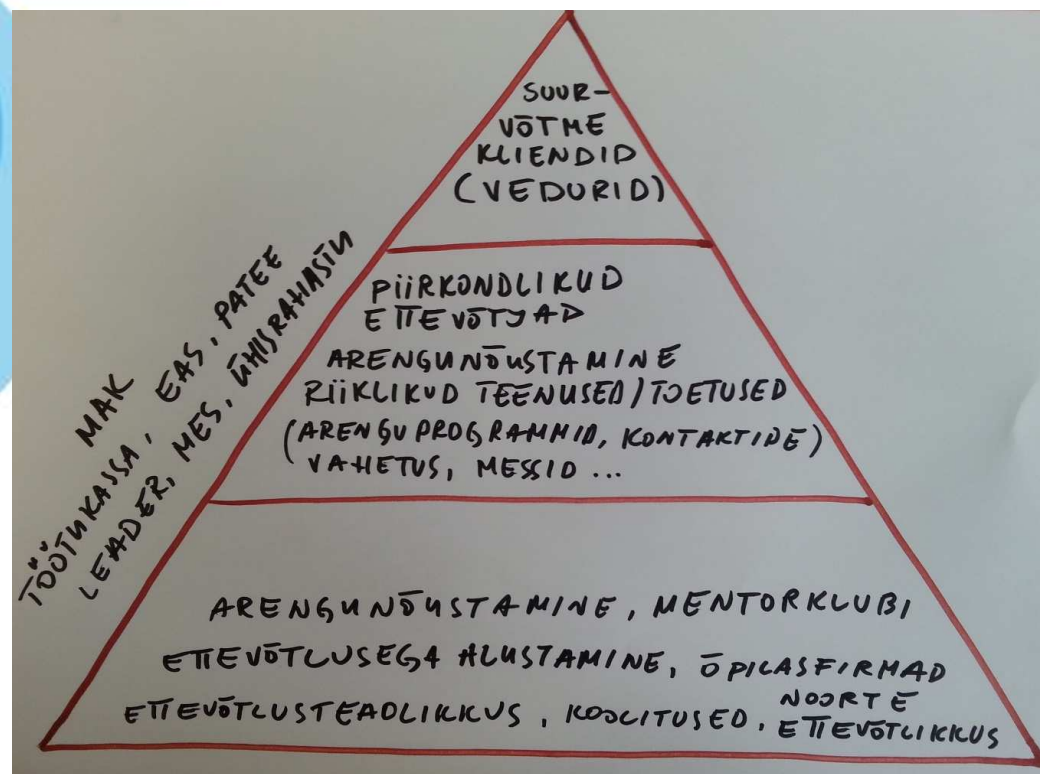 SUUR-
VÕTME
KLIENDID
(VEDURID)
MAK
TÖÖTUKASSA, EAS, PATEE
LEADER, MES, ÜHISRAHASTU
PIIRKONDLIKUD
ETTEVÕTJAD
ARENGUNÕUSTAMINE
RIIKLIKUD TEENUSED/TOETUSED
(ARENGUPROGRAMMID, KONTAKTIDE)
VAHETUS, MESSID ...
ARENGUNÕUSTAMINE, MENTORKLUBI
ETTEVÕTLUSEGA ALUSTAMINE, ÕPILASFIRMAD
ETTEVÕTLUSTEADLIKKUS, KOOLITUSED, NOORTE
ETTEVÕTLIKKUS